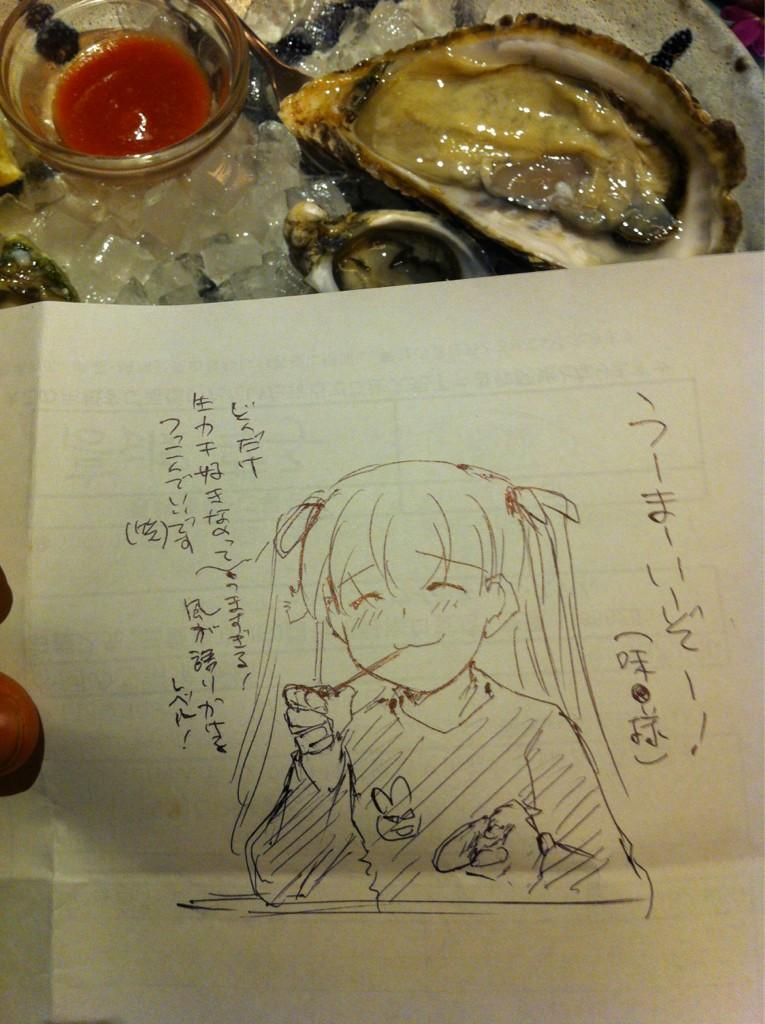 うーまーいーぞー!
(味●球)
どんだけ
生カキ好きなって〜
つっこんでいいです
(笑)
うますぎる!
風が語りかける
レベル!